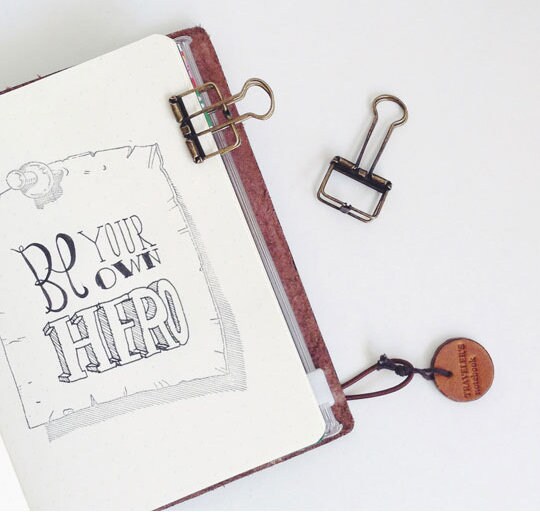 Be YOUR
OWN
HERO
TRAVELER'S
notebook